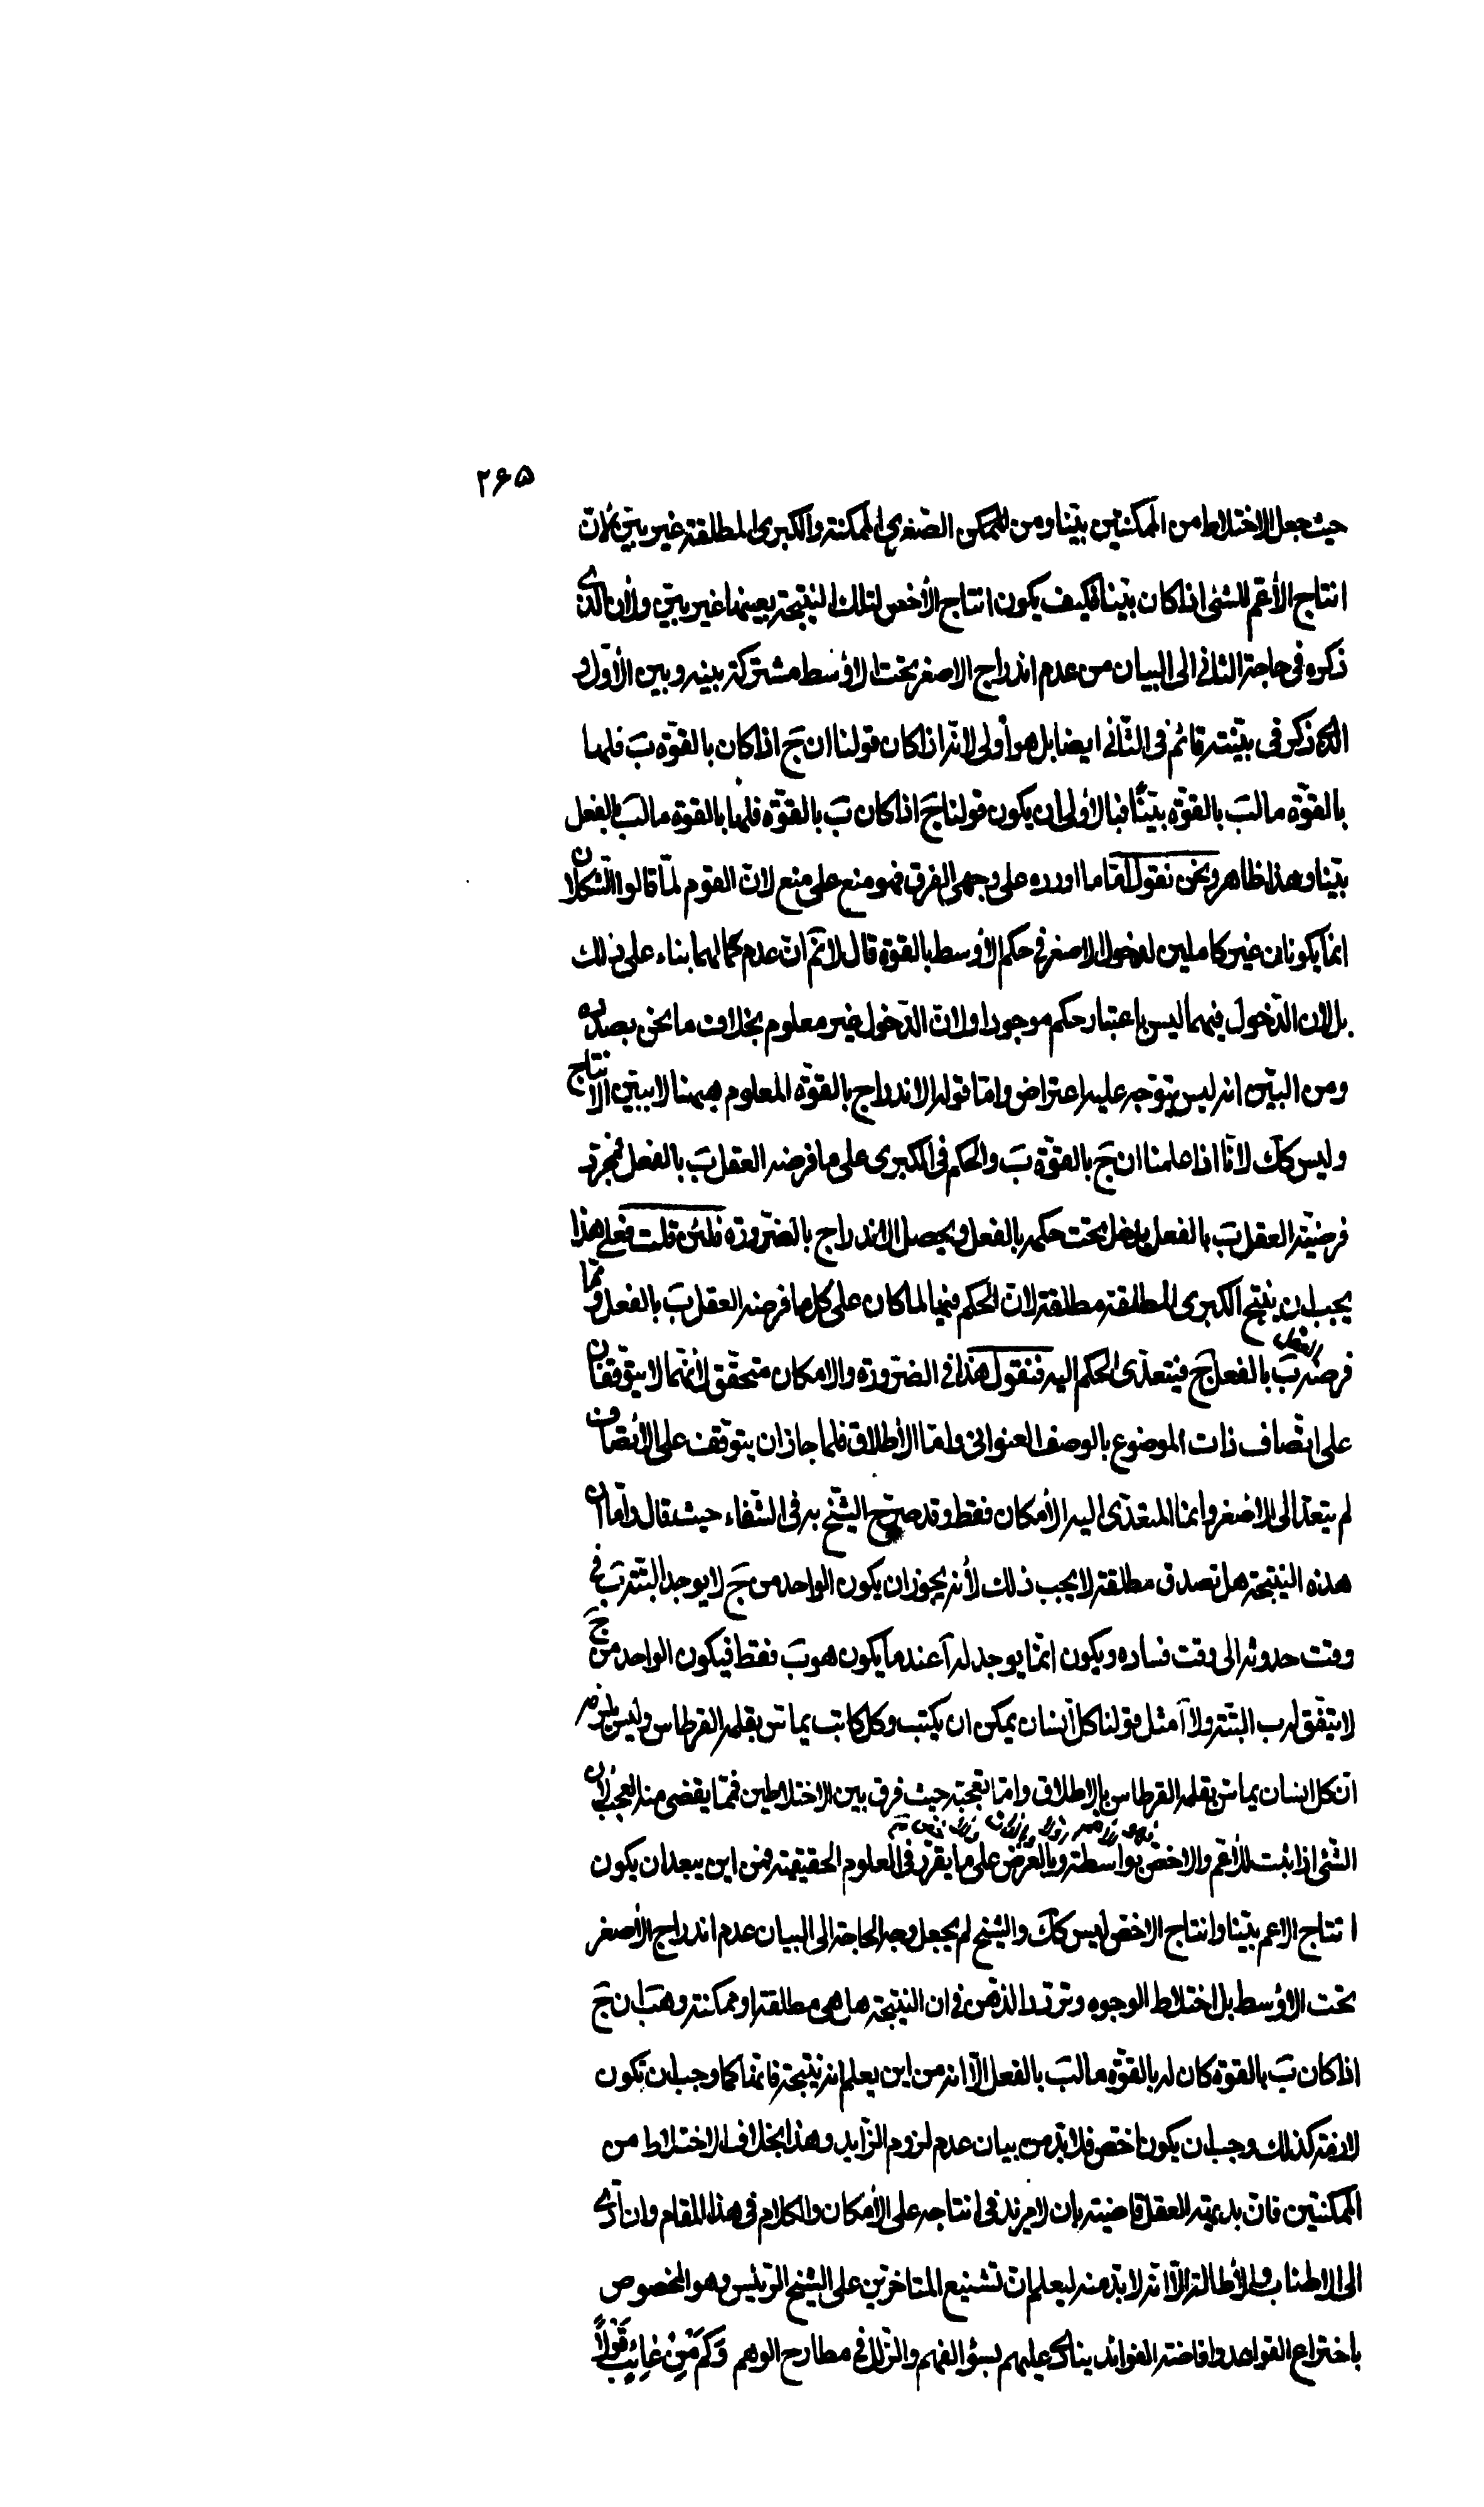 ۲۶۵
حيث جعل الاختلاط من الممكنتين بيّنا ومن الممكن الصّغرى الممكنة والكبرى المطلقة غير بيّن لأنّ
انتاج الأعمّ للشئ اذا كان بيّنا فكيف يكون انتاج الأخصّ لتلك النتيجة بعينها غير بيّن ولأن الّذى
ذكره فى حاجة الثانى الى البيان من عدم اندراج الاصغر تحت الاؤسط مشتركة بينه وبين الأوّل و
الّذى ذكر فى بيّنته قائم فى الثّانى ايضا بل هو أولى لانّه اذا كان قولنا ان جَ اذا كان بالقوّة بَ فلها
بالقوّة ما لبَ بالقوّة بيّنًا فبالأولى ان يكون قولنا جَ اذا كان بَ بالقوّة فلها بالقوة ما لبَ بالفعل
بيّنا وهذا ظاهر ونحن نقول امّا ما اورده على وجهى الفرق فهو منع على منع لانّ القوم لمّا قالوا الشّكلان
انما يكونان غير كاملين لدخول الاصغر فى حكم الأوسط بالقوة قال لا نمّ انّ عدم كمالهما بناء على ذلك
بل لان الدّخول فيهما ليس باعتبار حكم موجود او لانّ الدّخول غير معلوم بخلاف ما نحن بصدده
ومن البيّن انه ليس يتوجه عليه اعتراض وامّا قوله الاندراج بالقوّة المعلوم ههنا لا يبيّن الانتاج
وليس ككَ لانّا اذا علمنا ان جَ بالقوّة بَ والحكم فى الكبرى على ما فرضه العقل بَ بالفعل فبمجرّد
فرضيّة العقل بَ بالفعل يدخل تحت حكمه بالفعل ويحصل الاندراج بالضرورة فلئن قلت فعلى هذا
يجب ان ينتج الكبرى المطلقة مطلقة لانّ الحكم فيها لما كان على كل ما فرضه العقل بَ بالفعل وممّا
فرضه العقل بَ بالفعل جَ فيتعدّى الحكم اليه فنقول هذا فى الضرورة والامكان متحقّق لأنّهما لا يتوقفان
على اتّصاف ذات الموضوع بالوصف العنوانى وامّا الأطلاق فلما جاز ان يتوقّف على الأتّصاف
لم يتعدّ الى الاصغر وانمّا المتعدّى اليه الأمكان فقط وقد صرّح الشّيخ به فى الشّفاء حيث قال وامّا ان
هذه النتيجة هل تصدق مطلقة لا يجب ذلك لأنه يجوز ان يكون الواحد من جَ لا يوجد البتة بَ فى
وقت حدوثه الى وقت فساده ويكون انمّا يوجد له آ عند ما يكون هو بَ فقط فيكون الواحد من جَ
لا يتفّق له ب البتة ولا آ مثل قولنا كل انسان يمكن ان يكتب وكل كاتب يماسّ بقلمه القرطاس وليس يلزم
انّ كل انسان يماسّ بقلمه القرطاس بالاطلاق وامّا تعجّبه حيث فرق بين الاختلاطين فممّا يقضى منه العجب لأن
الشئ اذا ثبت للأعمّ والاخصّ بواسطة وبالعرض على ما يقرّر فى العلوم الحقيقية فمن اين يبعد ان يكون
انتاج الاعم بيّنا وانتاج الاخصّ ليس ككَ والشيخ لم يجعل وجه الحاجة الى البيان عدم اندراج الأصغر
تحت الاؤسط بل اختلاط الوجوه وتردّد الذهن فى ان النتيجة ها هى مطلقة او ممكنة وهب ان جَ
اذا كان بَ بالقوة كان له بالقوّة ما لبَ بالفعل الاّ انه من اين يعلم انه نتيجة فانهّا كما وجب ان تكون
لازمة كذلك وجب ان يكون اخصّ فلا بدّ من بيان عدم لزوم الزّايد وهذا بخلاف الاختلاط من
الممكنتين فانّ بديهيّة العقل قاضية بان لا مزيد فى انتاجه على الأمكان والكلام فى هذا المقام وان تأدّى
الى الاطناب والأطالة الاّ انّه لا بدّ منه ليعلم انّ تشنيع المتأخرّين على الشيخ الرّئيس وهو المخصوص
باختراع القواعد وافاضة الفوائد ينادى عليهم بسؤ الفهم والزّلل فى مطارح الوهم وَكَم مِّن عَائِبٍ قَولًا